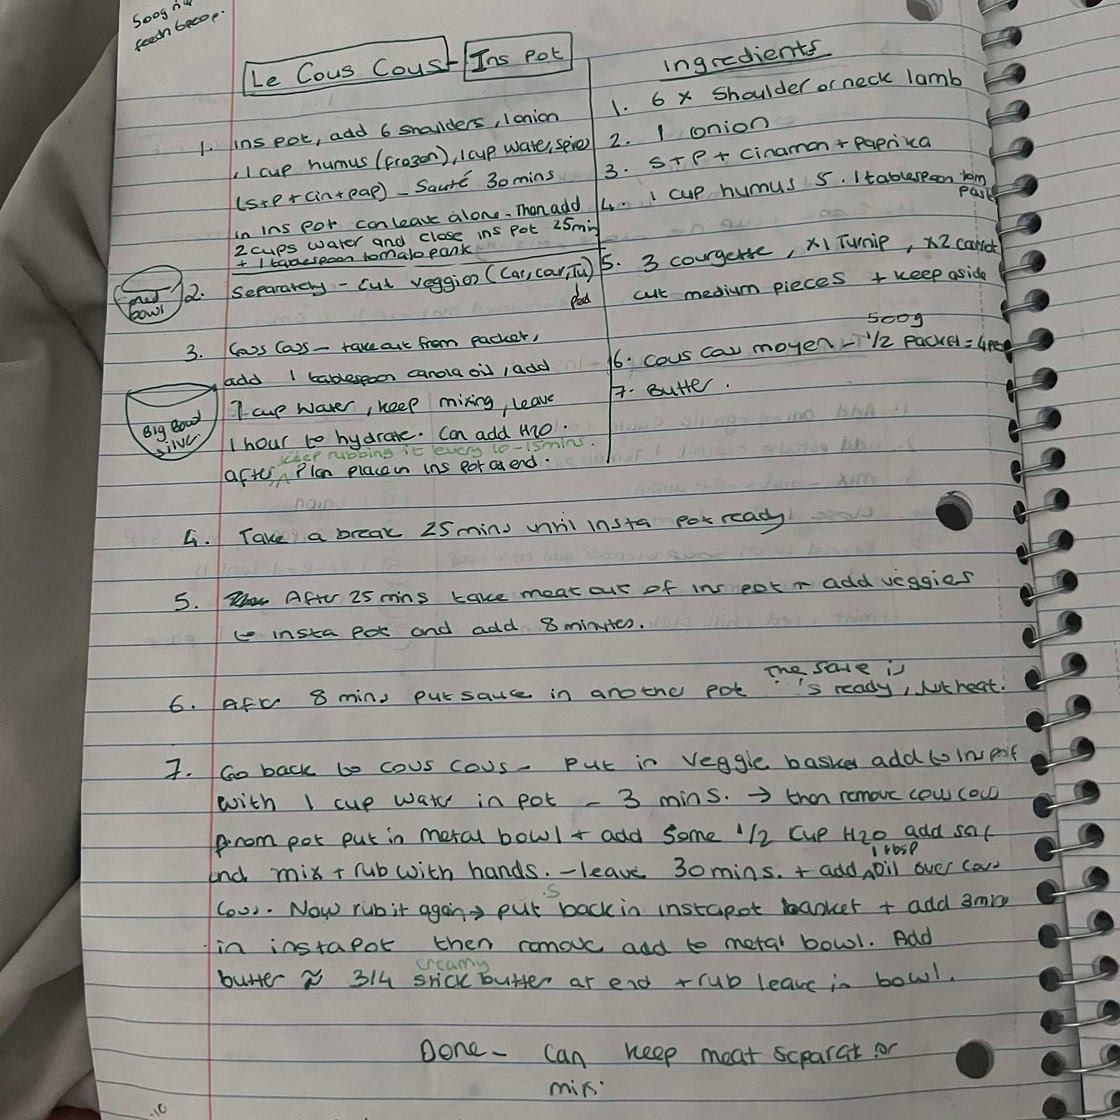 500g
feeds 6ppl.
Le Cous Cous - Ins Pot
1. Ins pot, add 6 shoulders, 1 onion
, 1 cup humus (frozen), 1 cup water, spice
(S+P + cin + pap) - Sauté 30 mins
in ins pot can leave alone. Then add
2 cups water and close ins pot 25min
+ 1 tablespoon tomato
med
bowl
2. Separately - cut veggies (Car, cour, Tu)
3. Cous Cous - take out from packet,
add 1 tablespoon canola oil, add
1 cup water, keep mixing, leave
Big Bowl
silver
1 hour to hydrate. Can add H2O.
keep rubbing it every 10-15mins.
after, Plan place in ins pot at end.
Ingredients
1. 6 x Shoulder or neck lamb
2. 1 onion
3. S+P + Cinamon + Paprika
4. 1 cup humus 5. 1 tablespoon tom
past
5. 3 courgette, x1 Turnip, x2 carrot
cut medium pieces + keep aside
500g
6. Cous cous moyen - 1/2 packet = 4
7. Butter.
4. Take a break 25 mins until insta pot ready
5. After 25 mins take meat out of ins pot + add veggies
to insta pot and add 8 minutes.
6. After 8 mins put sauce in another pot
The sauce is
's ready, heat.
7. Go back to cous cous - put in veggie basket add to ins pot
with 1 cup water in pot - 3 mins. → then remove couscous
from pot put in metal bowl + add some 1/2 cup H2O add salt
and mix + rub with hands. - leave 30 mins. + add oil over cous
1 tbsp
cous. Now rub it again → put back in instapot basket + add 3min
.S
in instapot then remove add to metal bowl. Add
creamy
butter ≈ 3/4 stick butter at end + rub leave in bowl.
Done - Can keep meat separate or
mix.